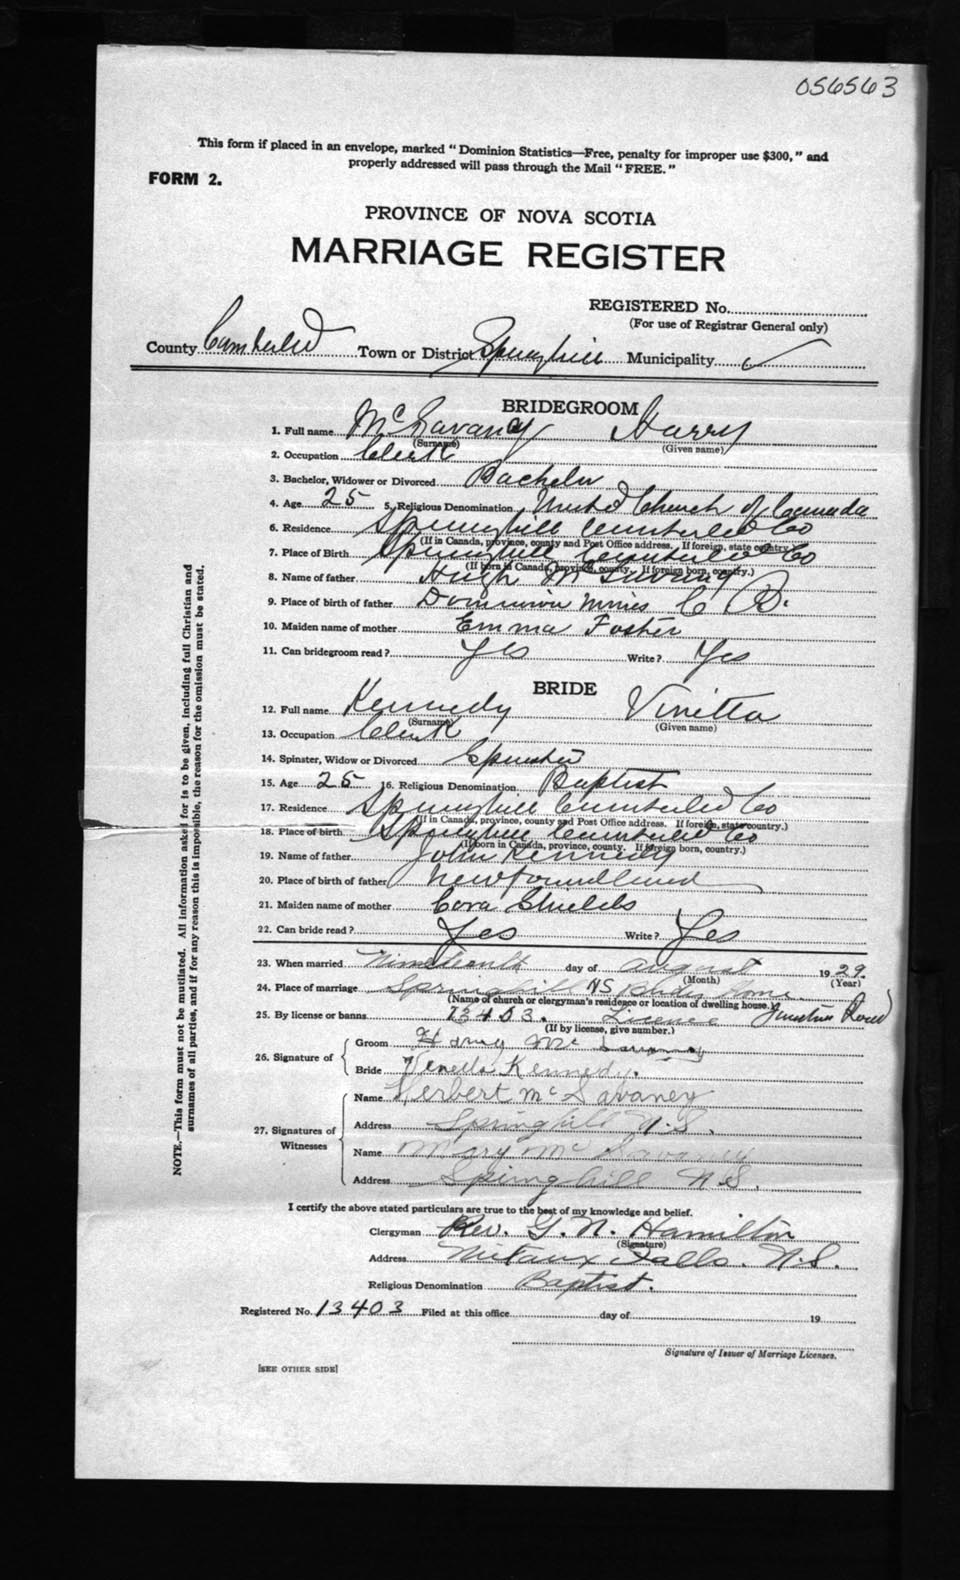 056563
This form if placed in an envelope, marked "Dominion Statistics—Free, penalty for improper use $300," and
properly addressed will pass through the Mail "FREE."
FORM 2.
PROVINCE OF NOVA SCOTIA
MARRIAGE REGISTER
REGISTERED No.
(For use of Registrar General only)
County Cumberled Town or District Springhill Municipality ✓
BRIDEGROOM
1. Full name McSavaney Harry
(Surname) (Given name)
2. Occupation Clerk
3. Bachelor, Widower or Divorced Bachelor
4. Age 25 5. Religious Denomination United Church of Canada
6. Residence Springhill Cumberled Co
(If in Canada, province, county and Post Office address. If foreign, state country.)
7. Place of Birth Springhill Cumberled Co
(If born in Canada, province, county. If foreign born, country.)
8. Name of father Hugh McSavaney
9. Place of birth of father Dominion Mines C B.
10. Maiden name of mother Emma Foster
11. Can bridegroom read? Yes Write? Yes
BRIDE
12. Full name Kennedy Vinetta
(Surname) (Given name)
13. Occupation Clerk
14. Spinster, Widow or Divorced Spinster
15. Age 25 16. Religious Denomination Baptist
17. Residence Springhill Cumberled Co
(If in Canada, province, county and Post Office address. If foreign, state country.)
18. Place of birth Springhill Cumberled Co
(If born in Canada, province, county. If foreign born, country.)
19. Name of father John Kennedy
20. Place of birth of father Newfoundland
21. Maiden name of mother Cora Shields
22. Can bride read? Yes Write? Yes
23. When married Nineteenth day of August 1929.
(Month) (Year)
24. Place of marriage Springhill NS Brides Home.
(Name of church or clergyman's residence or location of dwelling house.) Junction Road
25. By license or banns 13403. Licence
(If by license, give number.)
26. Signature of Groom Harry McSavaney
Bride Veneda Kennedy.
27. Signatures of Witnesses Name Herbert McSavaney
Address Springhill N.S.
Name Mary McSavaney
Address Springhill N.S.
I certify the above stated particulars are true to the best of my knowledge and belief.
Clergyman Rev. G. N. Hamilton
(Signature)
Address Nictaux Falls. N.S.
Religious Denomination Baptist.
Registered No. 13403 Filed at this office day of 19
Signature of Issuer of Marriage Licenses.
[SEE OTHER SIDE]
NOTE.—This form must not be mutilated. All information asked for is to be given, including full Christian and
surnames of all parties, and if for any reason this is impossible, the reason for the omission must be stated.